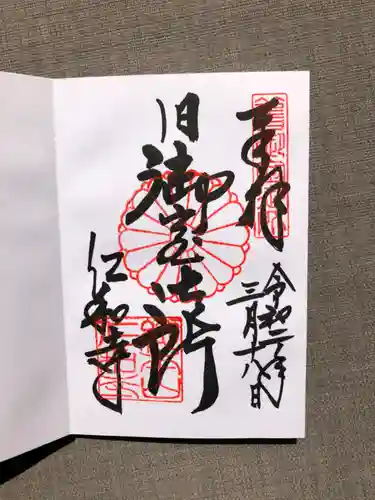 奉拝
令和二年
三月十八日
旧御室御所
仁和寺